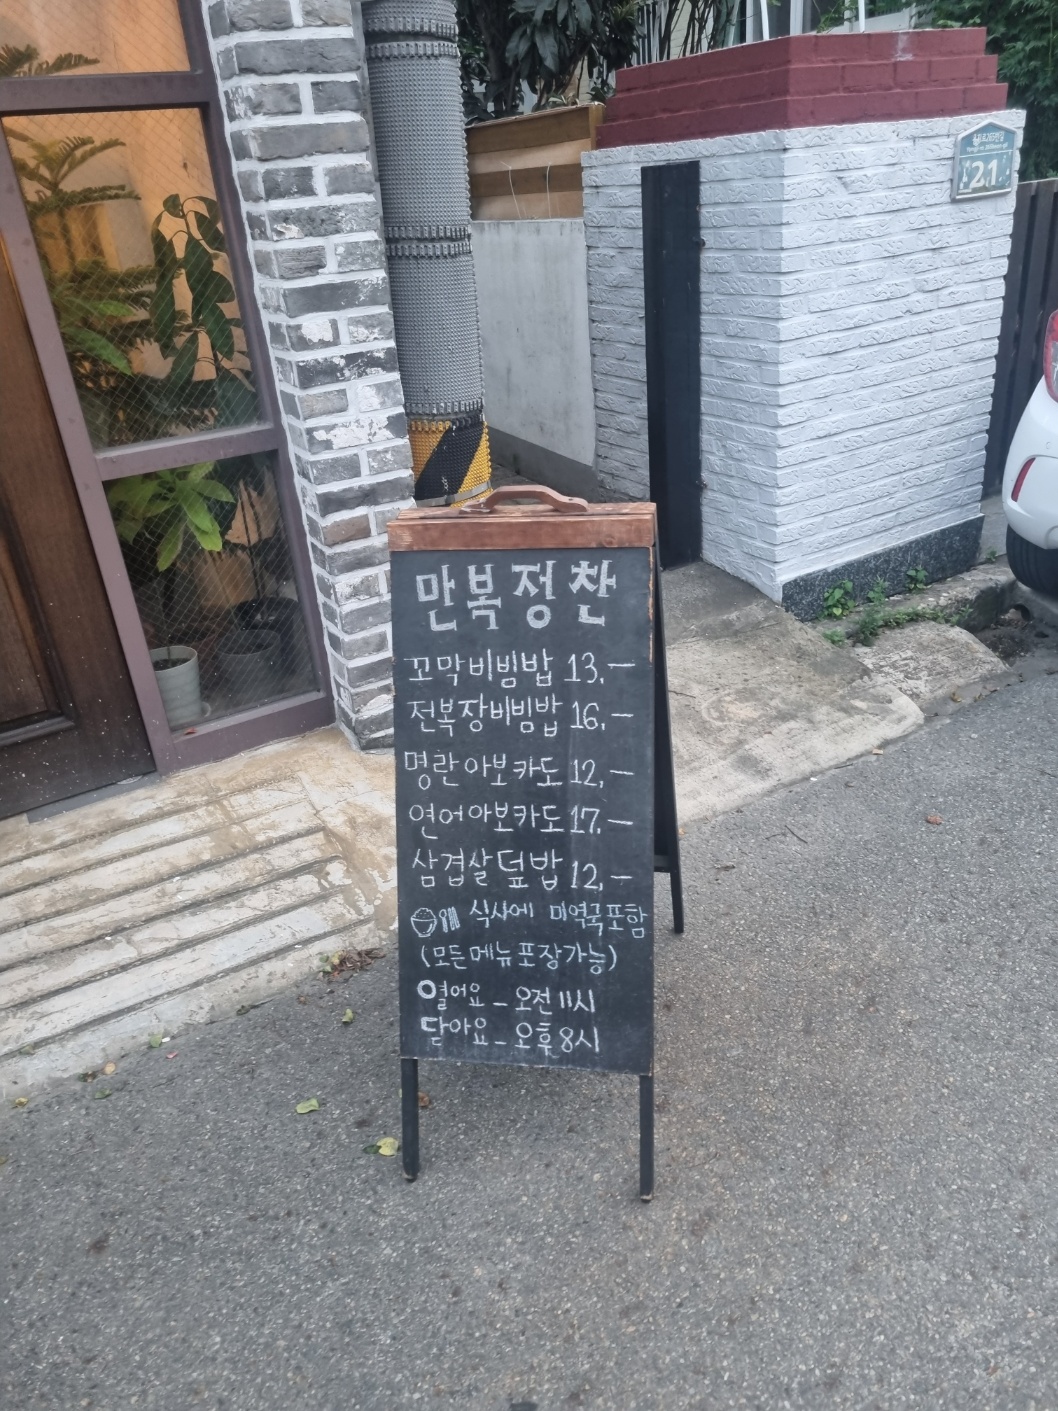 만복정찬
꼬막비빔밥 13.-
전복장비빔밥 16.-
명란아보카도 12.-
연어아보카도 17.-
삼겹살덮밥 12.-
식사에 미역국포함
(모든메뉴포장가능)
열어요 - 오전 11시
닫아요 - 오후 8시
21